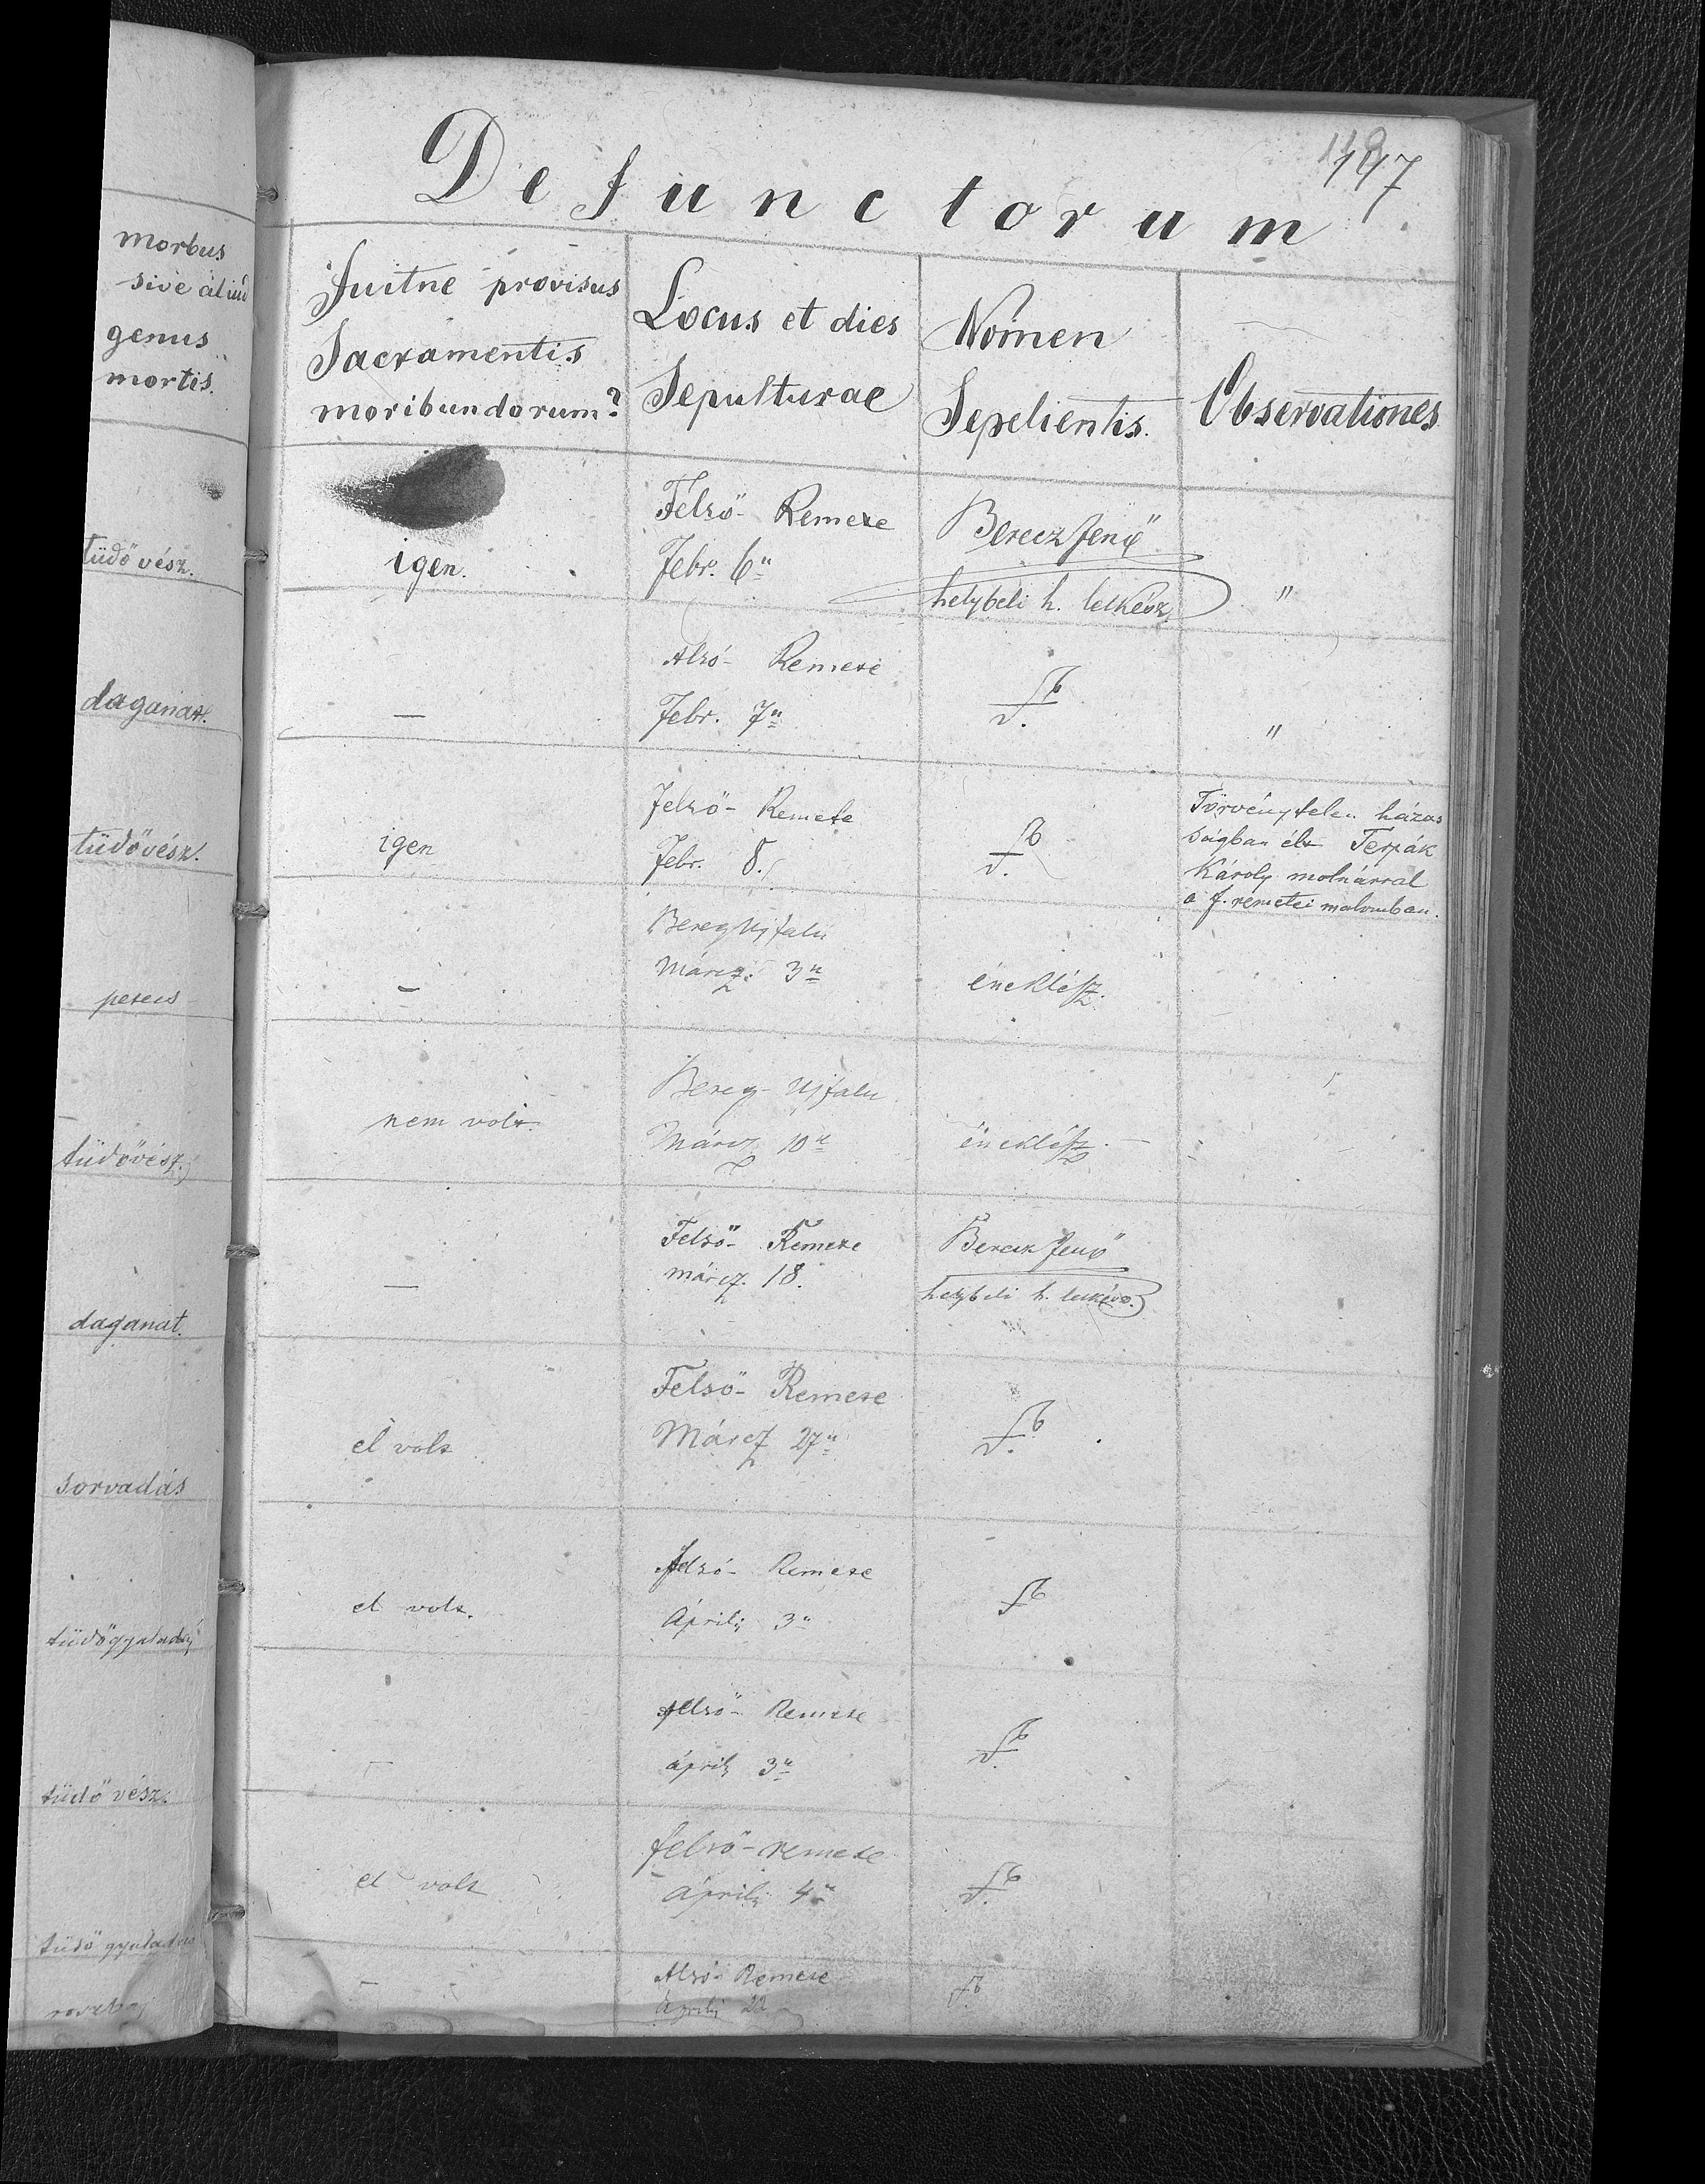 Defunctorum
147
morbus
sive aliud
genus
mortis.
Fuitne provisus
Sacramentis
moribundorum?
Locus et dies
Sepulturae
Nomen
Sepelientis.
Observationes.
tüdővész.
igen.
Felső- Remete
Febr. 6n
Berecz Jenő
helybeli h. lelkész
"
daganat.
—
Alsó- Remete
Febr. 7n
"
tüdővész.
igen
Felső- Remete
Febr. 8.
Törvénytelen házas
ságban élt Terpák
Károly molnárral
a f. remetei malomban.
–
Bereg Ujfalu
Márcz. 3n
éneklész.
tüdővész.
nem volt.
Bereg- Ujfalu
Márcz 10n
éneklész. —
daganat.
—
Felső- Remete
márcz. 18.
Berecz Jenő
helybeli h. lelkész.
sorvadás
el volt
Felső- Remete
Márcz 27n
tüdőgyuladás
el volt.
Felső- Remete
Április 3n
tüdővész.
–
Felső- Remete
ápril 3n
tüdő gyuladás
el volt
felső-remete
április 4n
–
Alsó- Remete
Április 22